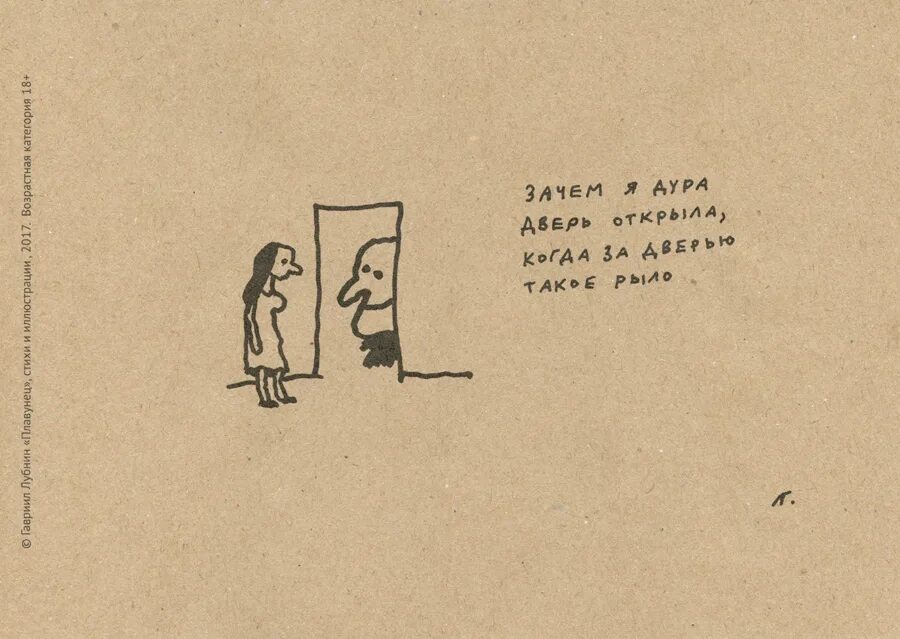 ЗАЧЕМ Я ДУРА
ДВЕРЬ ОТКРЫЛА,
КОГДА ЗА ДВЕРЬЮ
ТАКОЕ РЫЛО
Л.
© Гавриил Лубнин «Плавунец», стихи и иллюстрации, 2017. Возрастная категория 18+